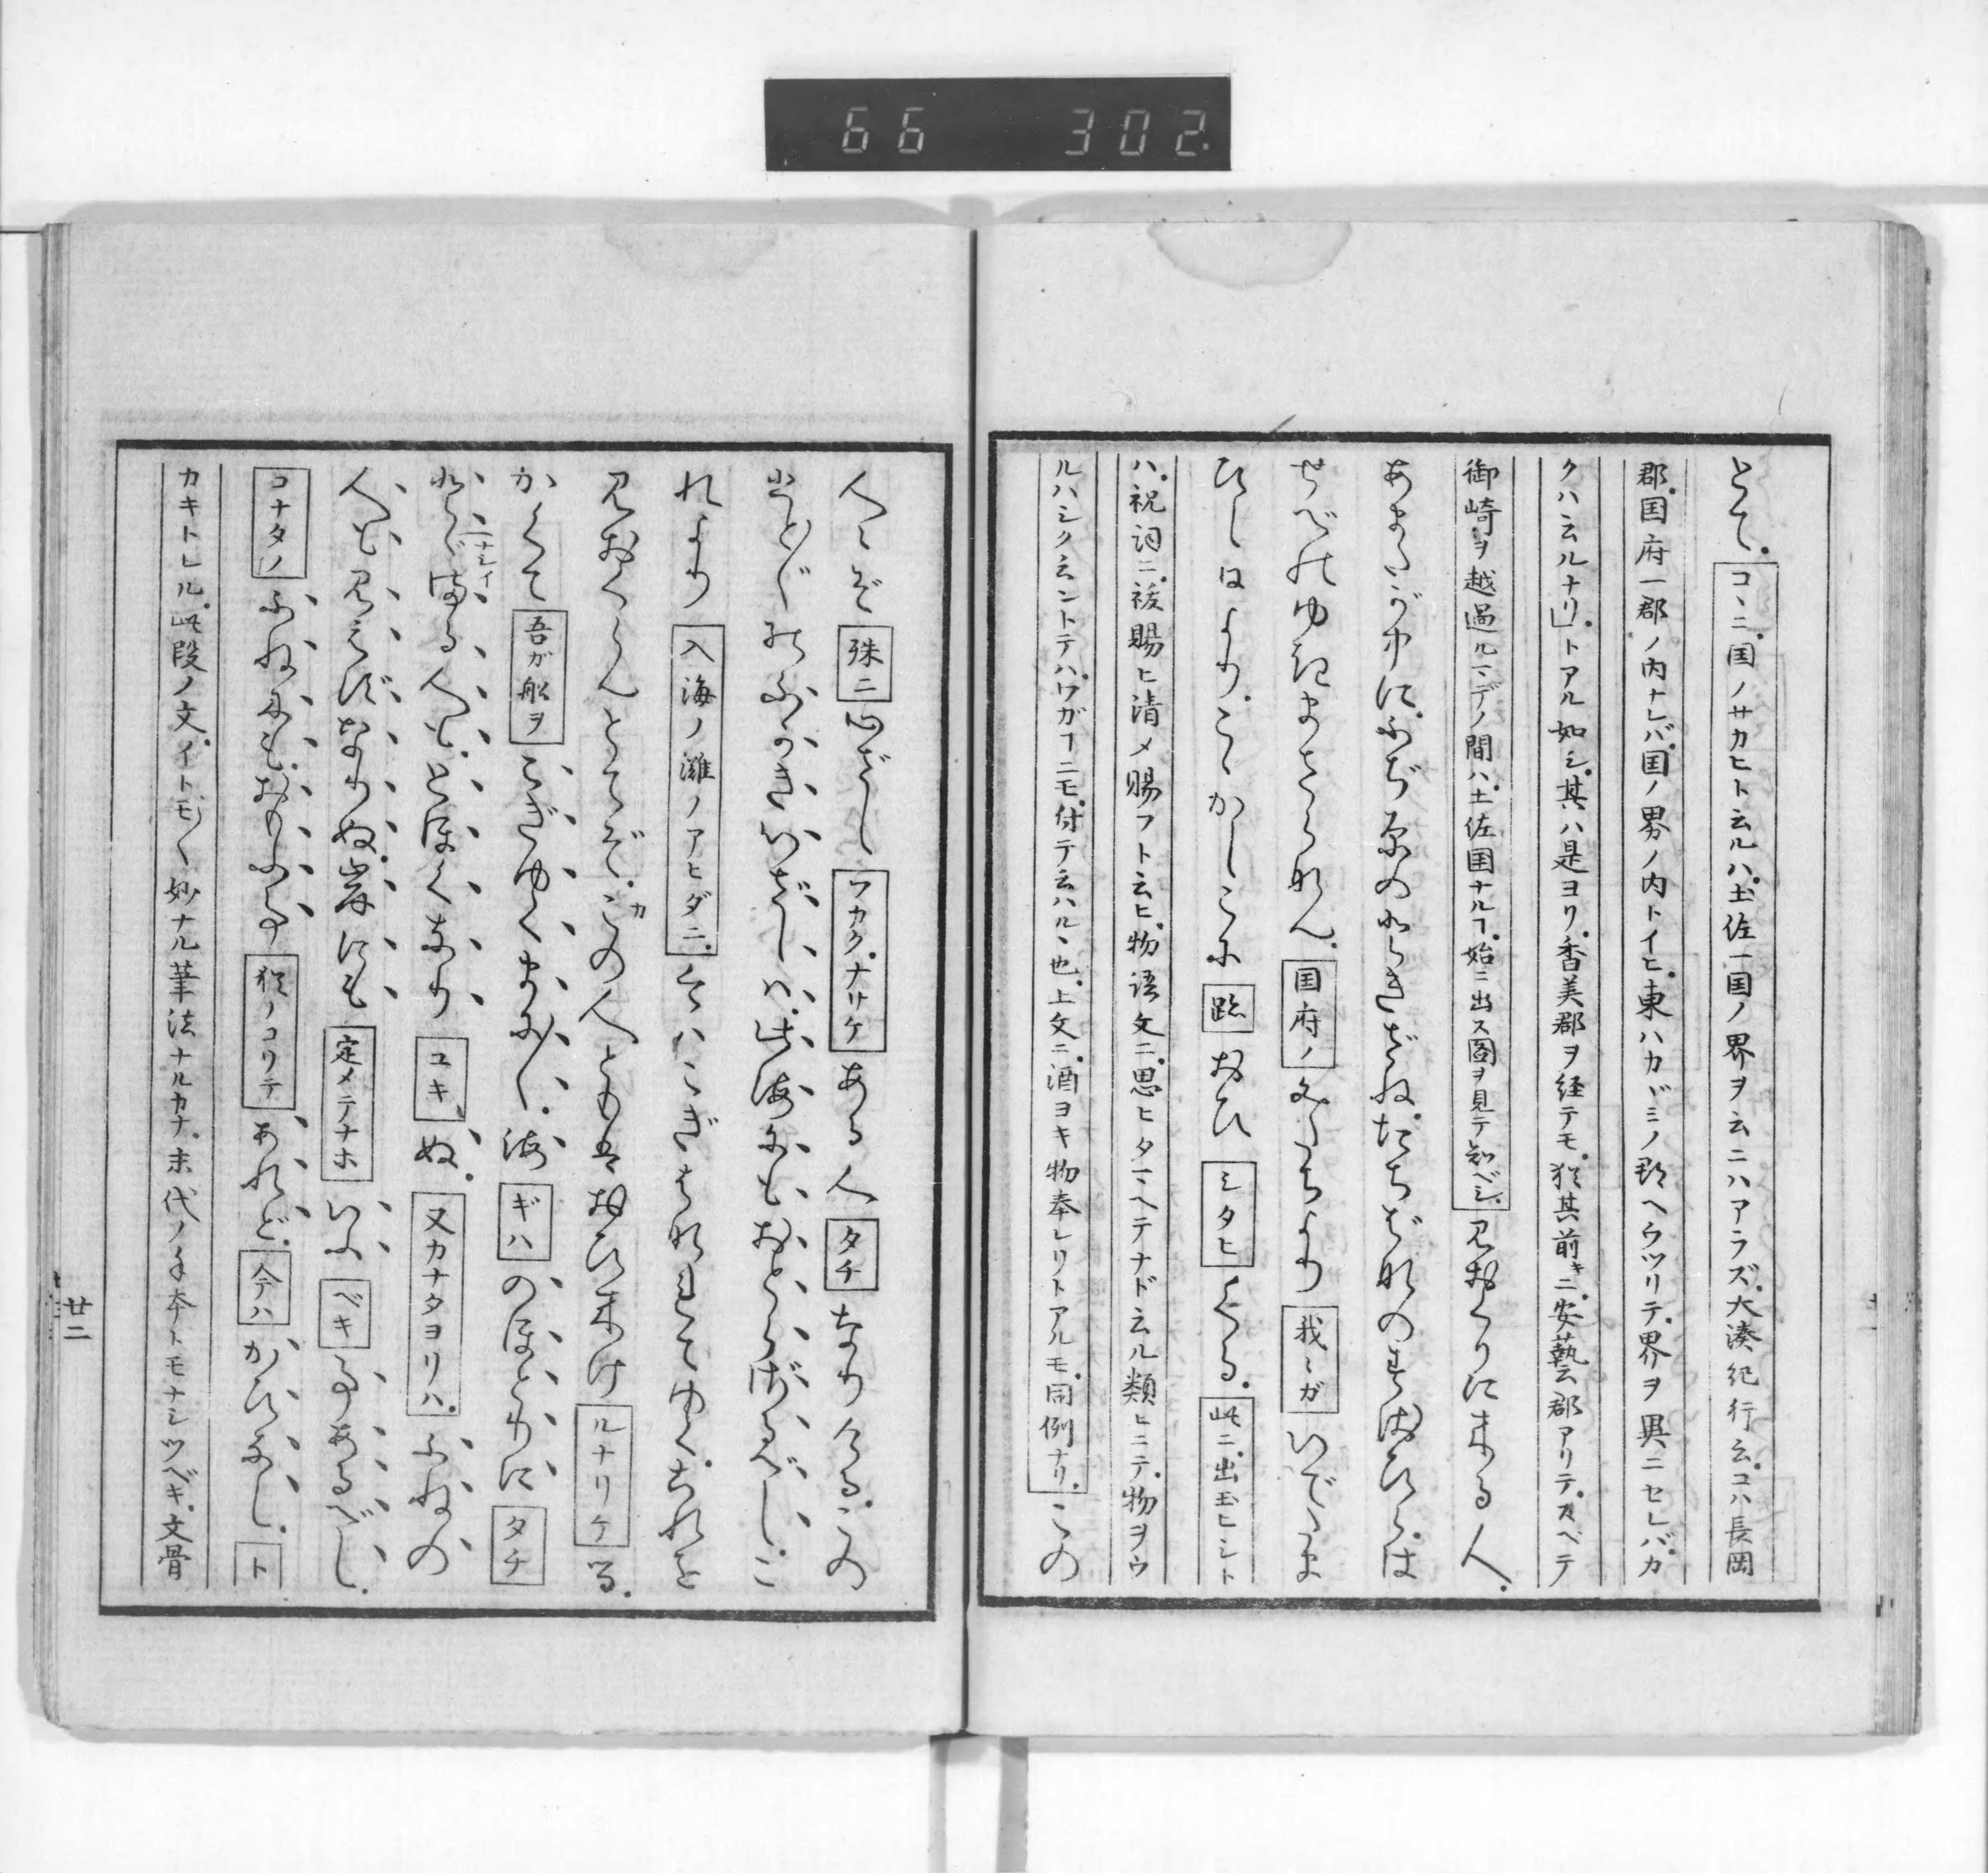 66 302
とて。コヽニ。国ノサカヒト云ルハ。土佐一国ノ界ヲ云ニハアラズ。大湊紀行云。コハ長岡
郡。国府一郡ノ内ナレバ。国ノ界ノ内トイヒ。東ハカヾミノ郡ヘウツリテ。界ヲ異ニセレバ。カ
クハ云ルナリ」。トアル如シ。其ハ是ヨリ。香美郡ヲ経テモ。猶其前キニ。安藝郡アリテ。スベテ
御崎ヲ越過ルマデノ間ハ。土佐国ナルヿ。始ニ出ス圖ヲ見テ知ベシ。見おくりに来る人。
あまたが中に。ふぢ原のときざね。たちばなのすゑひら。は
せべのゆきまさらなん。国府ノみたちより我ミガいでたま
ひし日より。こゝかしこに跡おひシタヒくる。此ニ。出玉ヒシト
ハ。祝詞ニ。祓賜ヒ清メ賜フト云ヒ。物語文ニ。思ヒタマヘテナド云ル類ヒニテ。物ヲウ
ルハシク云ントテハ。ワガヿニモ。付テ云ハルヽ也。上文ニ。酒ヨキ物奉レリトアルモ。同例ナリ。この
人〻ぞ殊ニ心ざしフカク。ナサケある人タチなりける。この
ひと〴〵のふかき心ざしハ。此海にもおとらざるべし。こ
れより入海ノ灘ノアヒダニ。今ハこぎはなれてゆく。これを
見おくらんとてぞ。この人ともは おひ来けルナリケる。
カ
かくて吾ガ船ヲこぎゆくまに〳〵。海ギハのほとりにタチ
とゞまる人も。とほくなりユキぬ。又カナタヨリハ。ふねの
ニナシイ
人も見えずなりぬ。岸にも定メテナホいふベキ事あるべし。
コナタノふねにも。おもふ事猶ノコリテあれど。今ハかひなし。ト
カキトレル。此段ノ文。イトモ〳〵妙ナル筆法ナルカナ。末代ノ手本トモナシツベキ。文骨
廿二